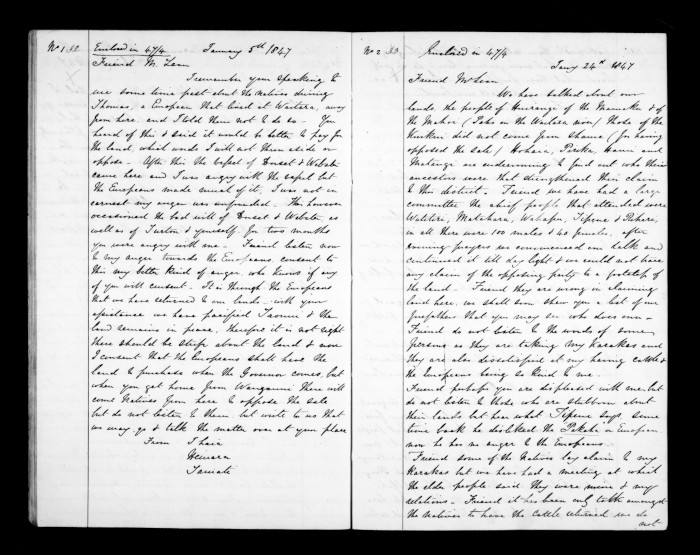 No 1
Enclosed in 47/4 January 5th 1847
Friend McLean
I remember your speaking to
me some time past about the natives driving
Thomas, a European that lived at Waitara, away
from here, and I told them not to do so - You
heard of this & said it would be better to pay for
the land, which words I will not throw aside or
oppose - After this the vessel of & Webster
came here and I was angry with the vessel but
the Europeans made much of it, I was not in
earnest my anger was unfounded - This however
occasioned the bad will of & Webster as
well as of Turton & yourself for two months
you were angry with me - Friend listen now
to my anger towards the Europeans. consent to
this my better kind of anger, who knows if any
of you will consent - It is through the Europeans
that we have returned to our lands - with your
assistance we have pacified & the
land remains in peace, therefore it is not right
there should be strife about the land & now
I consent that the Europeans shall have the
land to purchase when the Governor comes, but
when you get home from Wanganui there will
come Natives from here to oppose the sale
but do not listen to them, but write to us that
we may go & talk the matter over at your place
From Ihaia

Tamati
No 2
Enclosed in 47/4
Jany 24th 1847
Friend McLean
We have talked about our
lands, the people of of the Manuka & of
the Mahoe ( in the won) Those of the
did not come from shame (for having
opposed the sale) Hohaia, and
are endeavouring to find out who their
ancestors were that strengthened their claim
to the district - Friend we have had a large
committee the chief people that attended were
Tipene & Pihara,
in all there were 100 males & 40 females, after
evening prayers we commenced our talk and
continued it till day light & we could not hear
any claim of the opposing party to a footstep of
the land - Friend they are wrong in claiming
land here, we shall soon show you a list of our
forefathers that you may see who does own -
Friend do not listen to the words of some
persons as they are taking my Karakas and
they are also dissatisfied at my having cattle &
the Europeans being so kind to me.
Friend perhaps you are displeased with me, but
do not listen to those who are stubborn about
their lands but hear what Tipene says, some
time back he disliked the Pakeha or European
now he has no anger to the Europeans.
Friend some of the Natives lay claim to my
Karakas but we have had a meeting at which
the elder people said they were mine & my
relations - Friend it has been only talk amongst
the natives to have the cattle returned we do
not